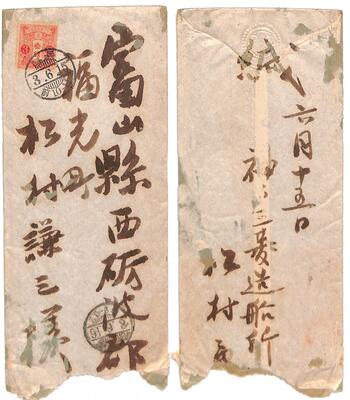 富山縣西砺波郡
福光町
松村謙三様
3
3.6.15
緘
六月十五日
神戸三菱造船所
松村